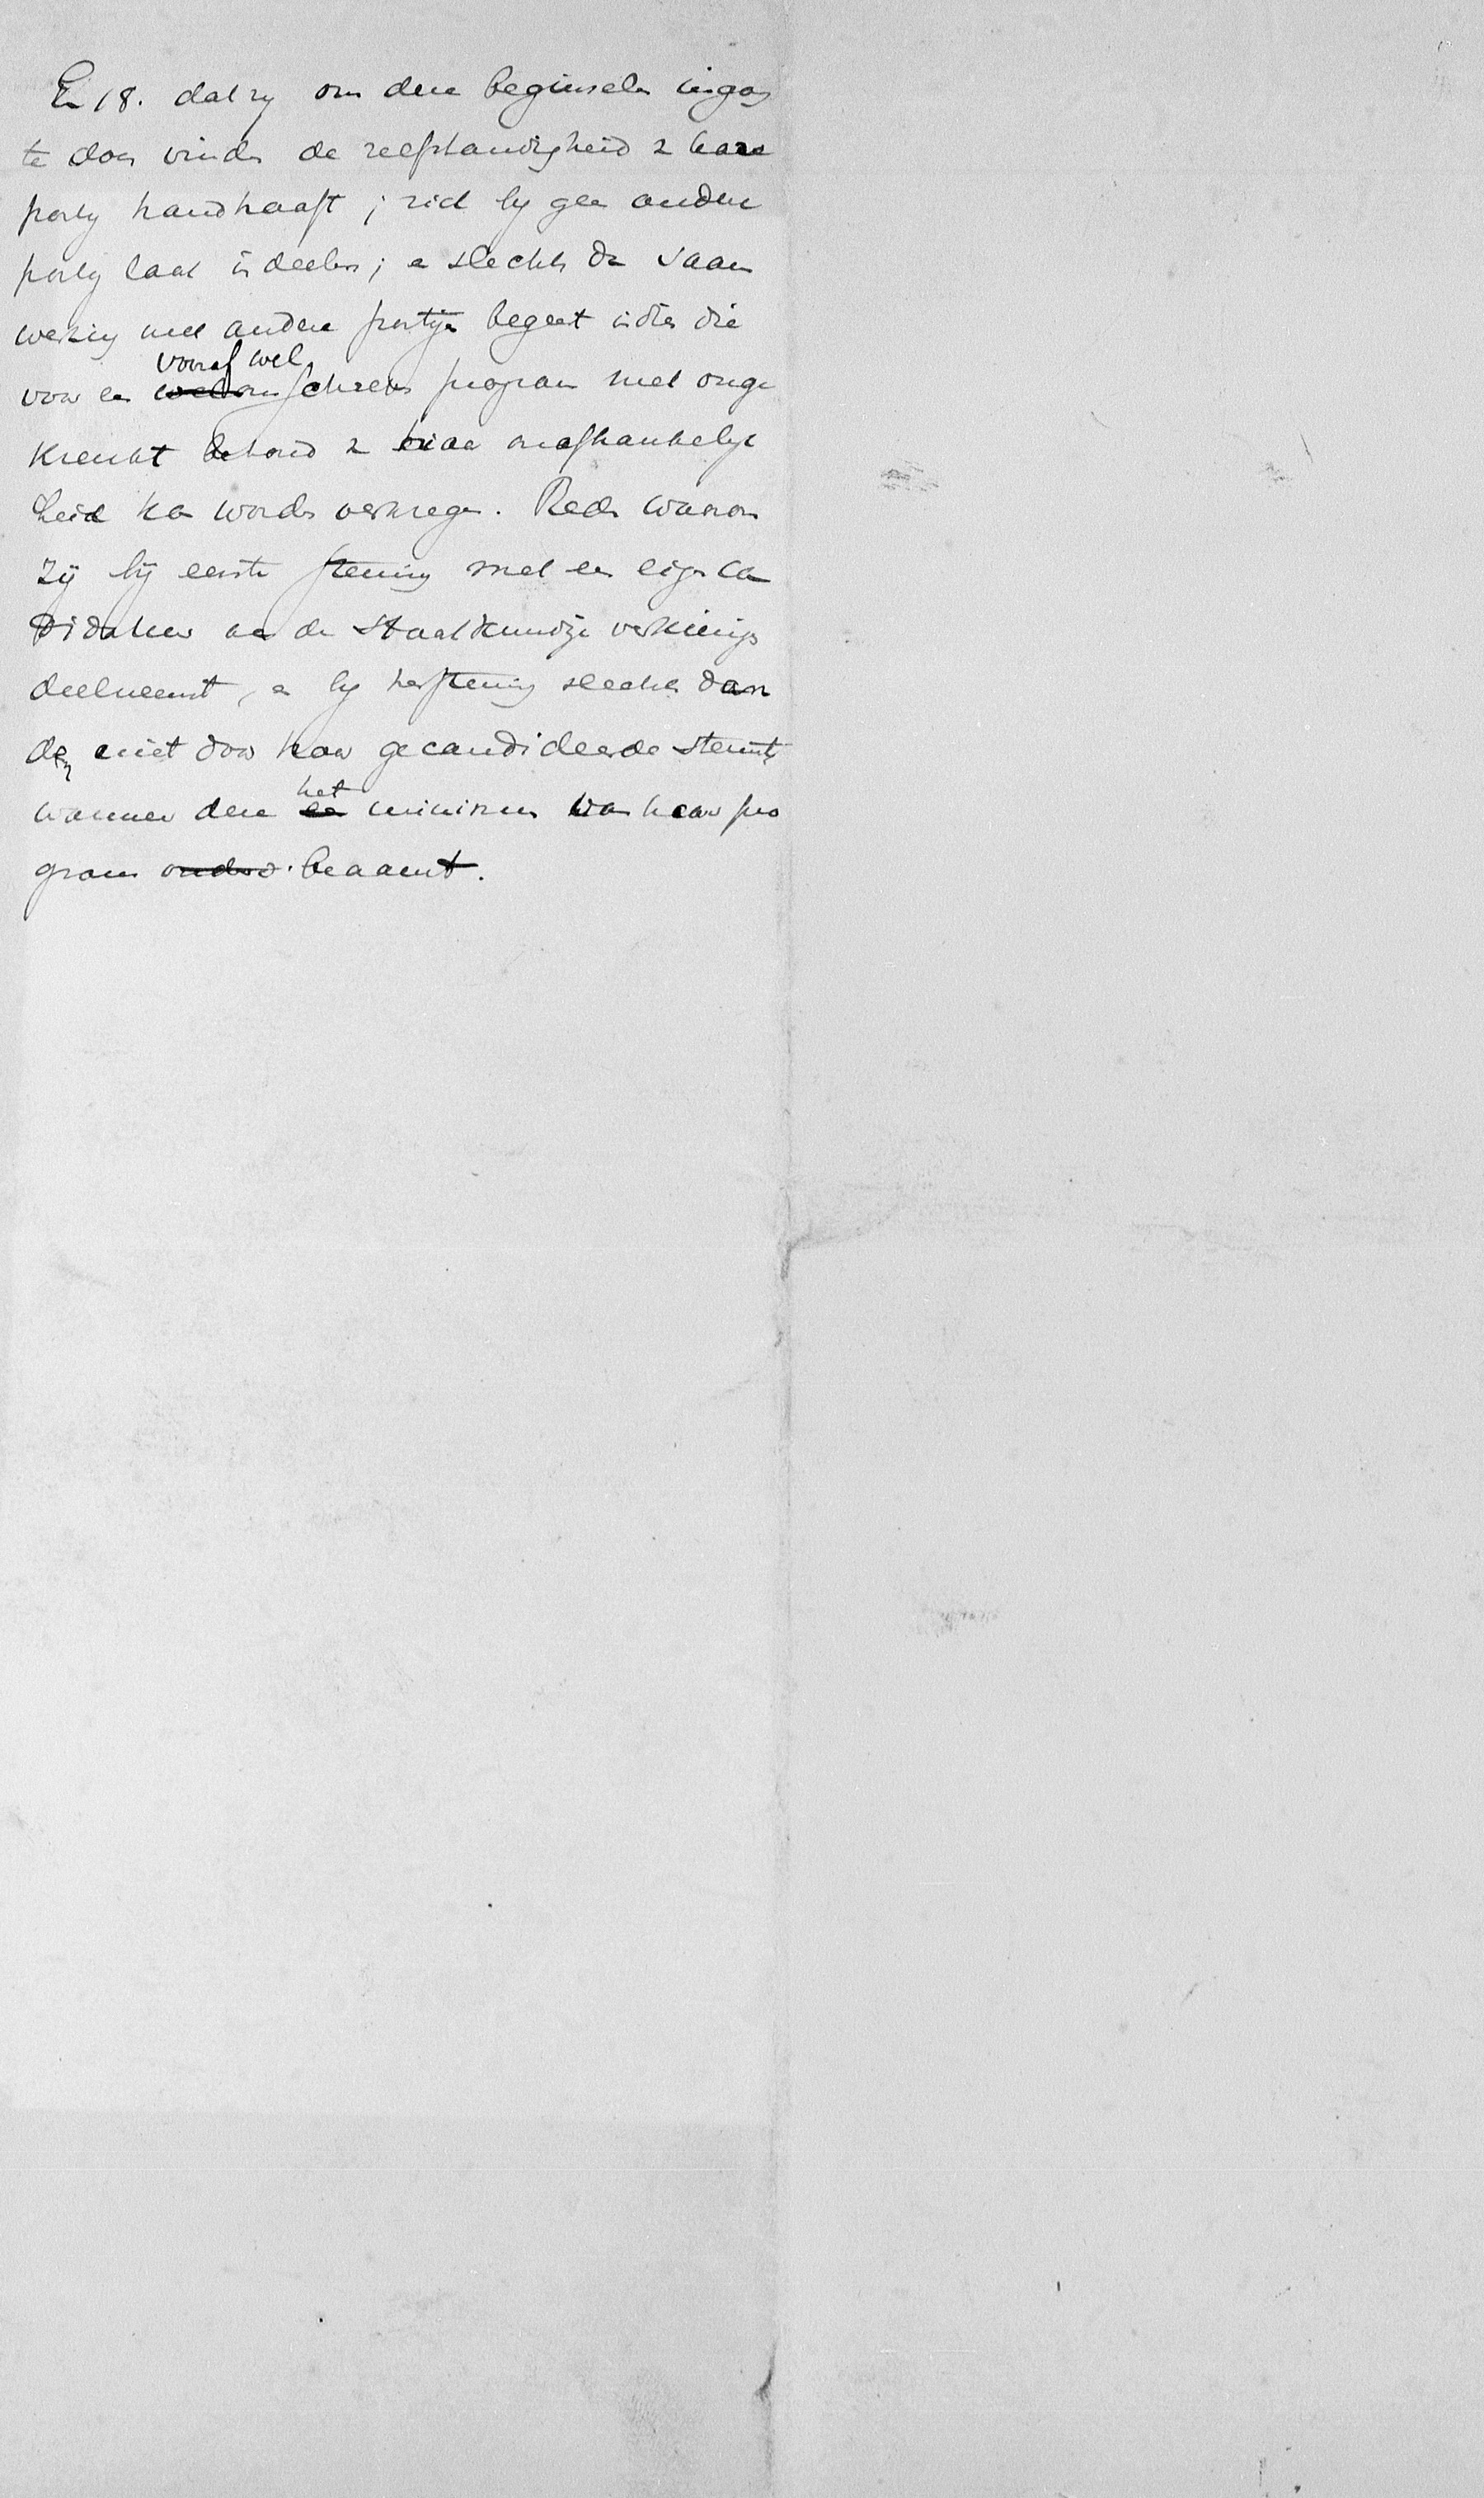 En 18. dat zy om deze beginselen ingang
te doen vinden de zelfstandigheid v hare
party handhaaft; zich by geen andere
party laat indeelen; en slechts dan saam
werking met andere partijen begeert indien die
vooraf wel
voor een welomschreven program met onge
krenkt behoud v hare onafhankelyk
heid kan worden verkregen. Reden waarom
zij bij eerste stemming met een eigen can
didaten aan de staatkundige verkiezings
deelneemt, en by herstemming slechts dan
den niet door haar gecandideerde stemt,
het
wanneer deze een minimum van haar pro
gram onders. beaamt.